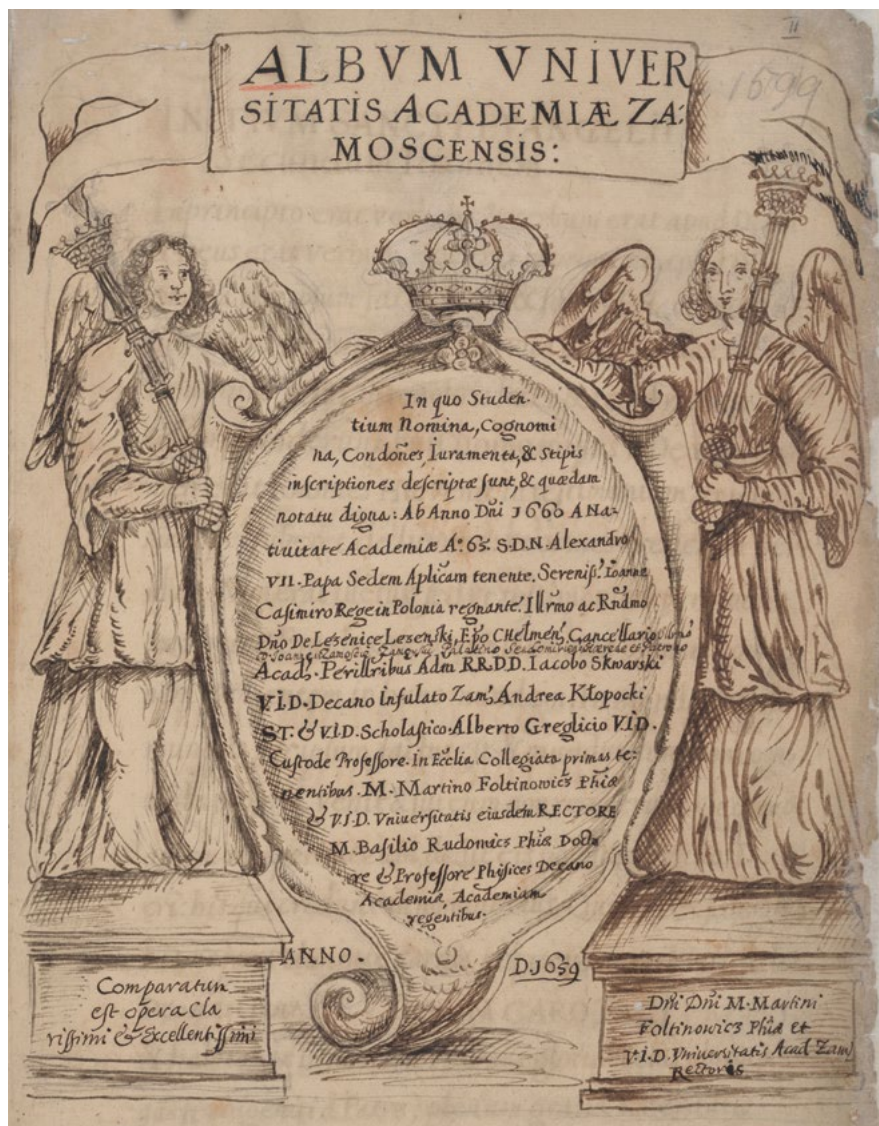 II
1699
ALBVM VNIVER
SITATIS ACADEMIÆ ZA:
MOSCENSIS:
In quo Studen-
tium Nomina, Cognomi
na, Condões, Iuramenta, & Stipis
inscriptiones descriptæ sunt, & quædam
notatu digna: Ab Anno Dñi 1660 A Na-
tiuitate Academiæ Aº. 65. S.D.N. Alexandro
VII. Papa Sedem Aplicam tenente. Sereniss. Ioanne
Casimiro Rege in Polonia regnante. Illrmo ac Rndmo
Dno De Lezenice Lezenski, Epo Chelmen, Cancellario
Acad. Perillribus Adm RR.DD. Iacobo Skwarski
V.I.D. Decano Infulato Zam, Andrea Kłopocki
ST. & V.I.D. Scholastico. Alberto Greglicio V.I.D.
Custode Professore. In Ecclia Collegiata primas te-
nentibus. M. Martino Foltinowicz Phiæ
& V.I.D. Vniuersitatis eiusdem RECTORE
M. Basilio Rudomicz Phiæ Docto
re & Professore Phisices Decano
Academiæ, Academiam
regentibus.
ANNO. D.1659
Comparatum
est opera Cla
rissimi & Excellentissimi
Dñi Dñi M. Martini
Foltinowicz Phiæ et
V.I.D. Vniuersitatis Acad Zam
Rectoris